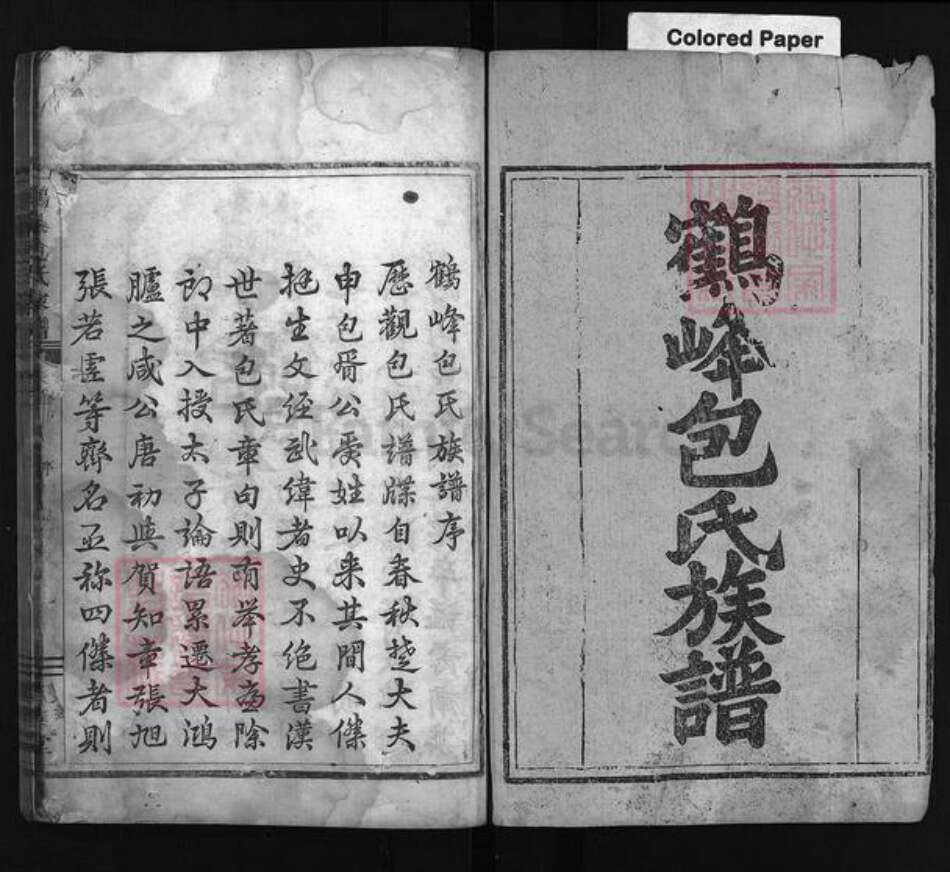 Colored Paper
鶴峰包氏族譜
鶴峰包氏族譜序
歷觀包氏譜牒自春秋楚大夫
申包胥公受姓以來其間人傑
挺生文經武緯者史不絶書漢
世著包氏章句則有举孝亷除
郎中入授太子論語累遷大鴻
臚之咸公唐初與賀知章張旭
張若虛等齊名並称四傑者則